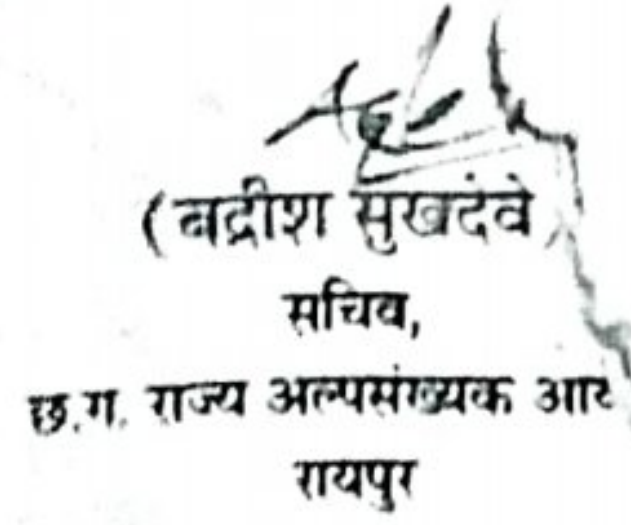 (बद्रीश सुखदेवे)
सचिव,
छ.ग. राज्य अल्पसंख्यक
रायपुर